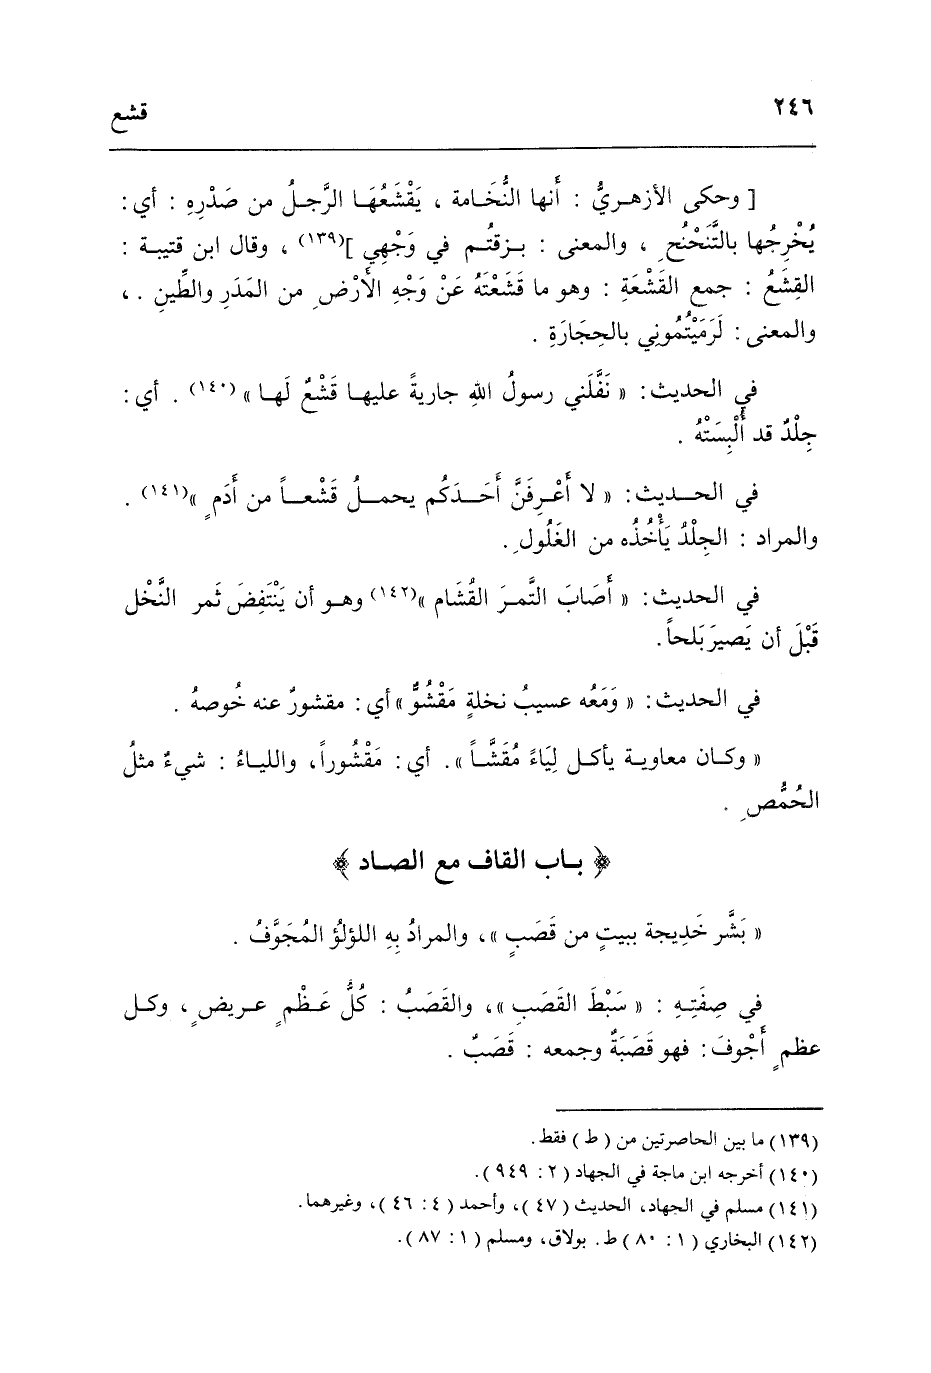 ٢٤٦ قشع
[ وحكى الأزهـريُّ : أَنها النُّخَـامة ، يَقْشَعُهَـا الرَّجـلُ من صَدْرِهِ : أي :
يُخْرِجُها بالتَّنَحْنُحِ ، والمعنى : بـزقتُـم في وَجْهِي ](١٣٩) ، وقال ابن قتيبة :
القِشَعُ : جمع القَشْعَةِ : وهو ما قَشَعْتَهُ عَنْ وَجْهِ الأَرْضِ من المَدَرِ والطِّينِ . ،
والمعنى : لَرَمَيْتُمُونِي بالحِجَارَةِ .
في الحديث : « نَفَّلَني رسولُ اللهِ جاريةً عليهـا قَشْعٌ لَهـا »(١٤٠) . أي :
جِلْدٌ قد أُلْبِسَتْهُ .
في الحـديث : « لا أَعْـرِفَنَّ أَحَـدَكُم يحمـلُ قَشْعـاً من أَدَمٍ »(١٤١) .
والمراد : الجِلْدُ يَأْخُذُه من الغَلُولِ .
في الحديث : « أَصَابَ التَّمـرَ القُشَام »(١٤٢) وهـو أن يَنْتَفِضَ ثَمر النَّخْل
قَبْلَ أن يَصيرَ بَلحاً .
في الحديث : « وَمَعُه عسيبُ نخلةٍ مَقْشُوٌّ » أي : مقشورٌ عنه خُوصهُ .
« وكـان معاويـة يأكـل لِيَاءً مُقَشَّـاً » . أي : مَقْشُوراً ، والليـاءُ : شيءٌ مثلُ
الحُمُّصِ .
﴿ بـاب القاف مع الصـاد ﴾
« بَشَّر خَدِيجة ببيتٍ من قَصَبٍ » ، والمرادُ بِهِ اللؤلؤُ المُجَوَّفُ .
في صِفَتِـهِ : « سَبْطَ القَصَبِ » ، والقَصَبُ : كُلُّ عَـظْمٍ عـريضٍ ، وكـل
عظمٍ أَجْوفَ : فهو قَصَبَةٌ وجمعه : قَصَبٌ .
(١٣٩) ما بين الحاصرتين من ( ط ) فقط .
(١٤٠) أخرجه ابن ماجة في الجهاد ( ٢ : ٩٤٩ ) .
(١٤١) مسلم في الجهاد ، الحديث ( ٤٧ ) ، وأحمد ( ٤ : ٤٦ ) ، وغيرهما .
(١٤٢) البخاري ( ١ : ٨٠ ) ط . بولاق ، ومسلم ( ١ : ٨٧ ) .